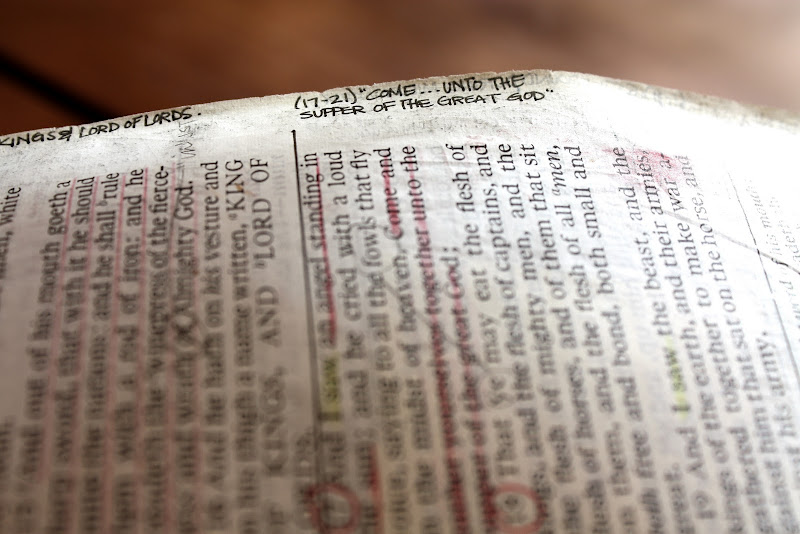 KINGS & LORD OF LORDS.
(17-21) "COME...UNTO THE
SUPPER OF THE GREAT GOD"
white
And out of his mouth goeth a
sword, that with it he should
the nations: and he shall rule
them with a rod of iron: and he
treadeth the winepress of the fierce-
ness and wrath of Almighty God.
And he hath on his vesture and
on his thigh a name written, "KING
OF KINGS, AND "LORD OF
LORDS.
17 And I saw an angel standing in
the sun; and he cried with a loud
voice, saying to all the fowls that fly
in the midst of heaven, Come and
gather yourselves together unto the
supper of the great God;
18 That ye may eat the flesh of
kings, and the flesh of captains, and
the flesh of mighty men, and the
flesh of horses, and of them that sit
on them, and the flesh of all "men,
both free and bond, both small and
great.
19 And I saw the beast, and the
kings of the earth, and their armies,
gathered together to make war a-
gainst him that sat on the horse, and
against his army.
his mouth: